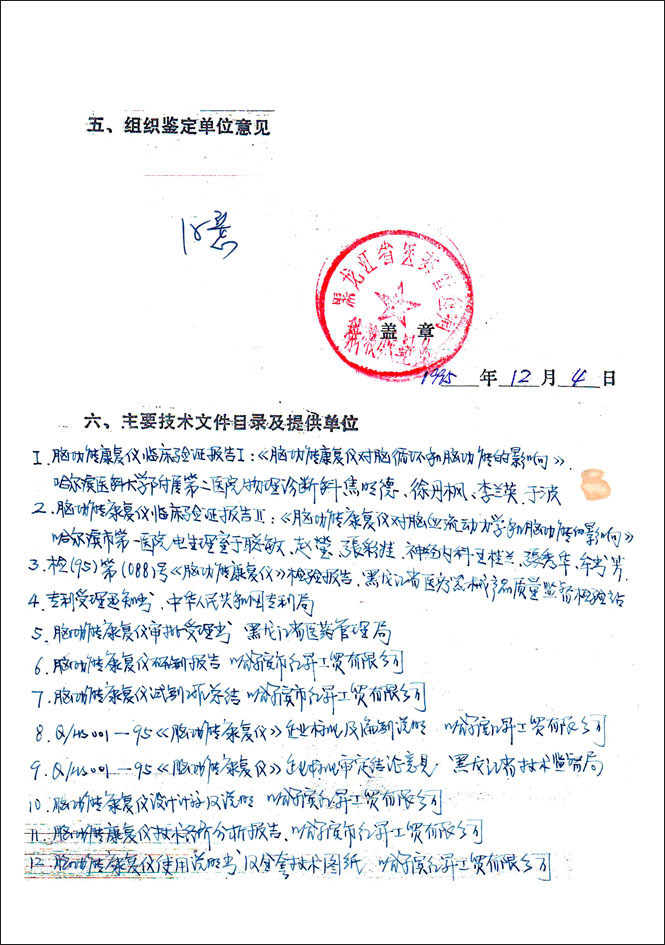 五、组织鉴定单位意见
同意
黑龙江省医药管理局
盖 章
1995 年 12 月 4 日
六、主要技术文件目录及提供单位
1. 脑功能康复仪临床验证报告I:《脑功能康复仪对脑循环和脑功能的影响》.
哈尔滨医科大学附属第二医院物理诊断科焦明德、徐丹枫、李兰英、于波
2. 脑功能康复仪临床验证报告II:《脑功能康复仪对脑血流动力学和脑功能的影响》
哈尔滨市第一医院电生理室于聪敏、赵莹、張彩娃、神经内科王桂兰、張秀华、
3. 检(95)第(088)号《脑功能康复仪》检验报告、黑龙江省医疗器械产品质量监督检验站
4. 专利受理通知书、中华人民共和国专利局
5. 脑功能康复仪审批受理书 黑龙江省医药管理局
6. 脑功能康复仪研制报告 哈尔滨市红昇工贸有限公司
7. 脑功能康复仪试制 总结 哈尔滨市红昇工贸有限公司
8. Q/HS001—95《脑功能康复仪》企业标准及编制说明 哈尔滨红昇工贸有限公司
9. Q/HS001—95《脑功能康复仪》企业标准审定结论意见. 黑龙江省技术监督局
10. 脑功能康复仪设计计算及说明 哈尔滨红昇工贸有限公司
11. 脑功能康复仪技术经济分析报告、哈尔滨市红昇工贸有限公司
12. 脑功能康复仪使用说明书及全套技术图纸 哈尔滨红昇工贸有限公司